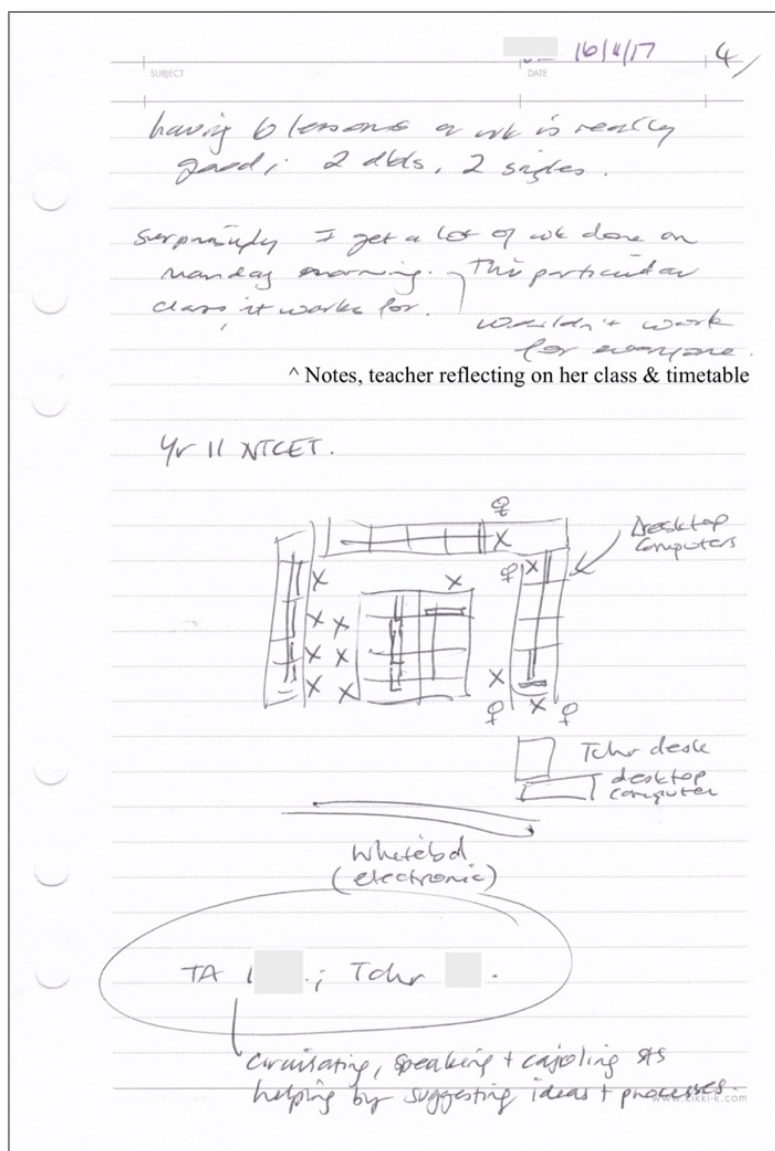 16/11/17 4/
SUBJECT DATE
having 6 lessons a wk is really
good; 2 dbls, 2 singles.
Surprisingly I get a lot of wk done on
Monday morning. This particular
class, it works for. wouldn't work
for everyone.
^ Notes, teacher reflecting on her class & timetable
Yr 11 NTCET.
Desktop
computers
Tchr desk
desktop
computer
Whitebd
(electronic)
TA ; Tchr .
Circulating, speaking + cajoling sts
helping by suggesting ideas + processes.
www.kikki-k.com